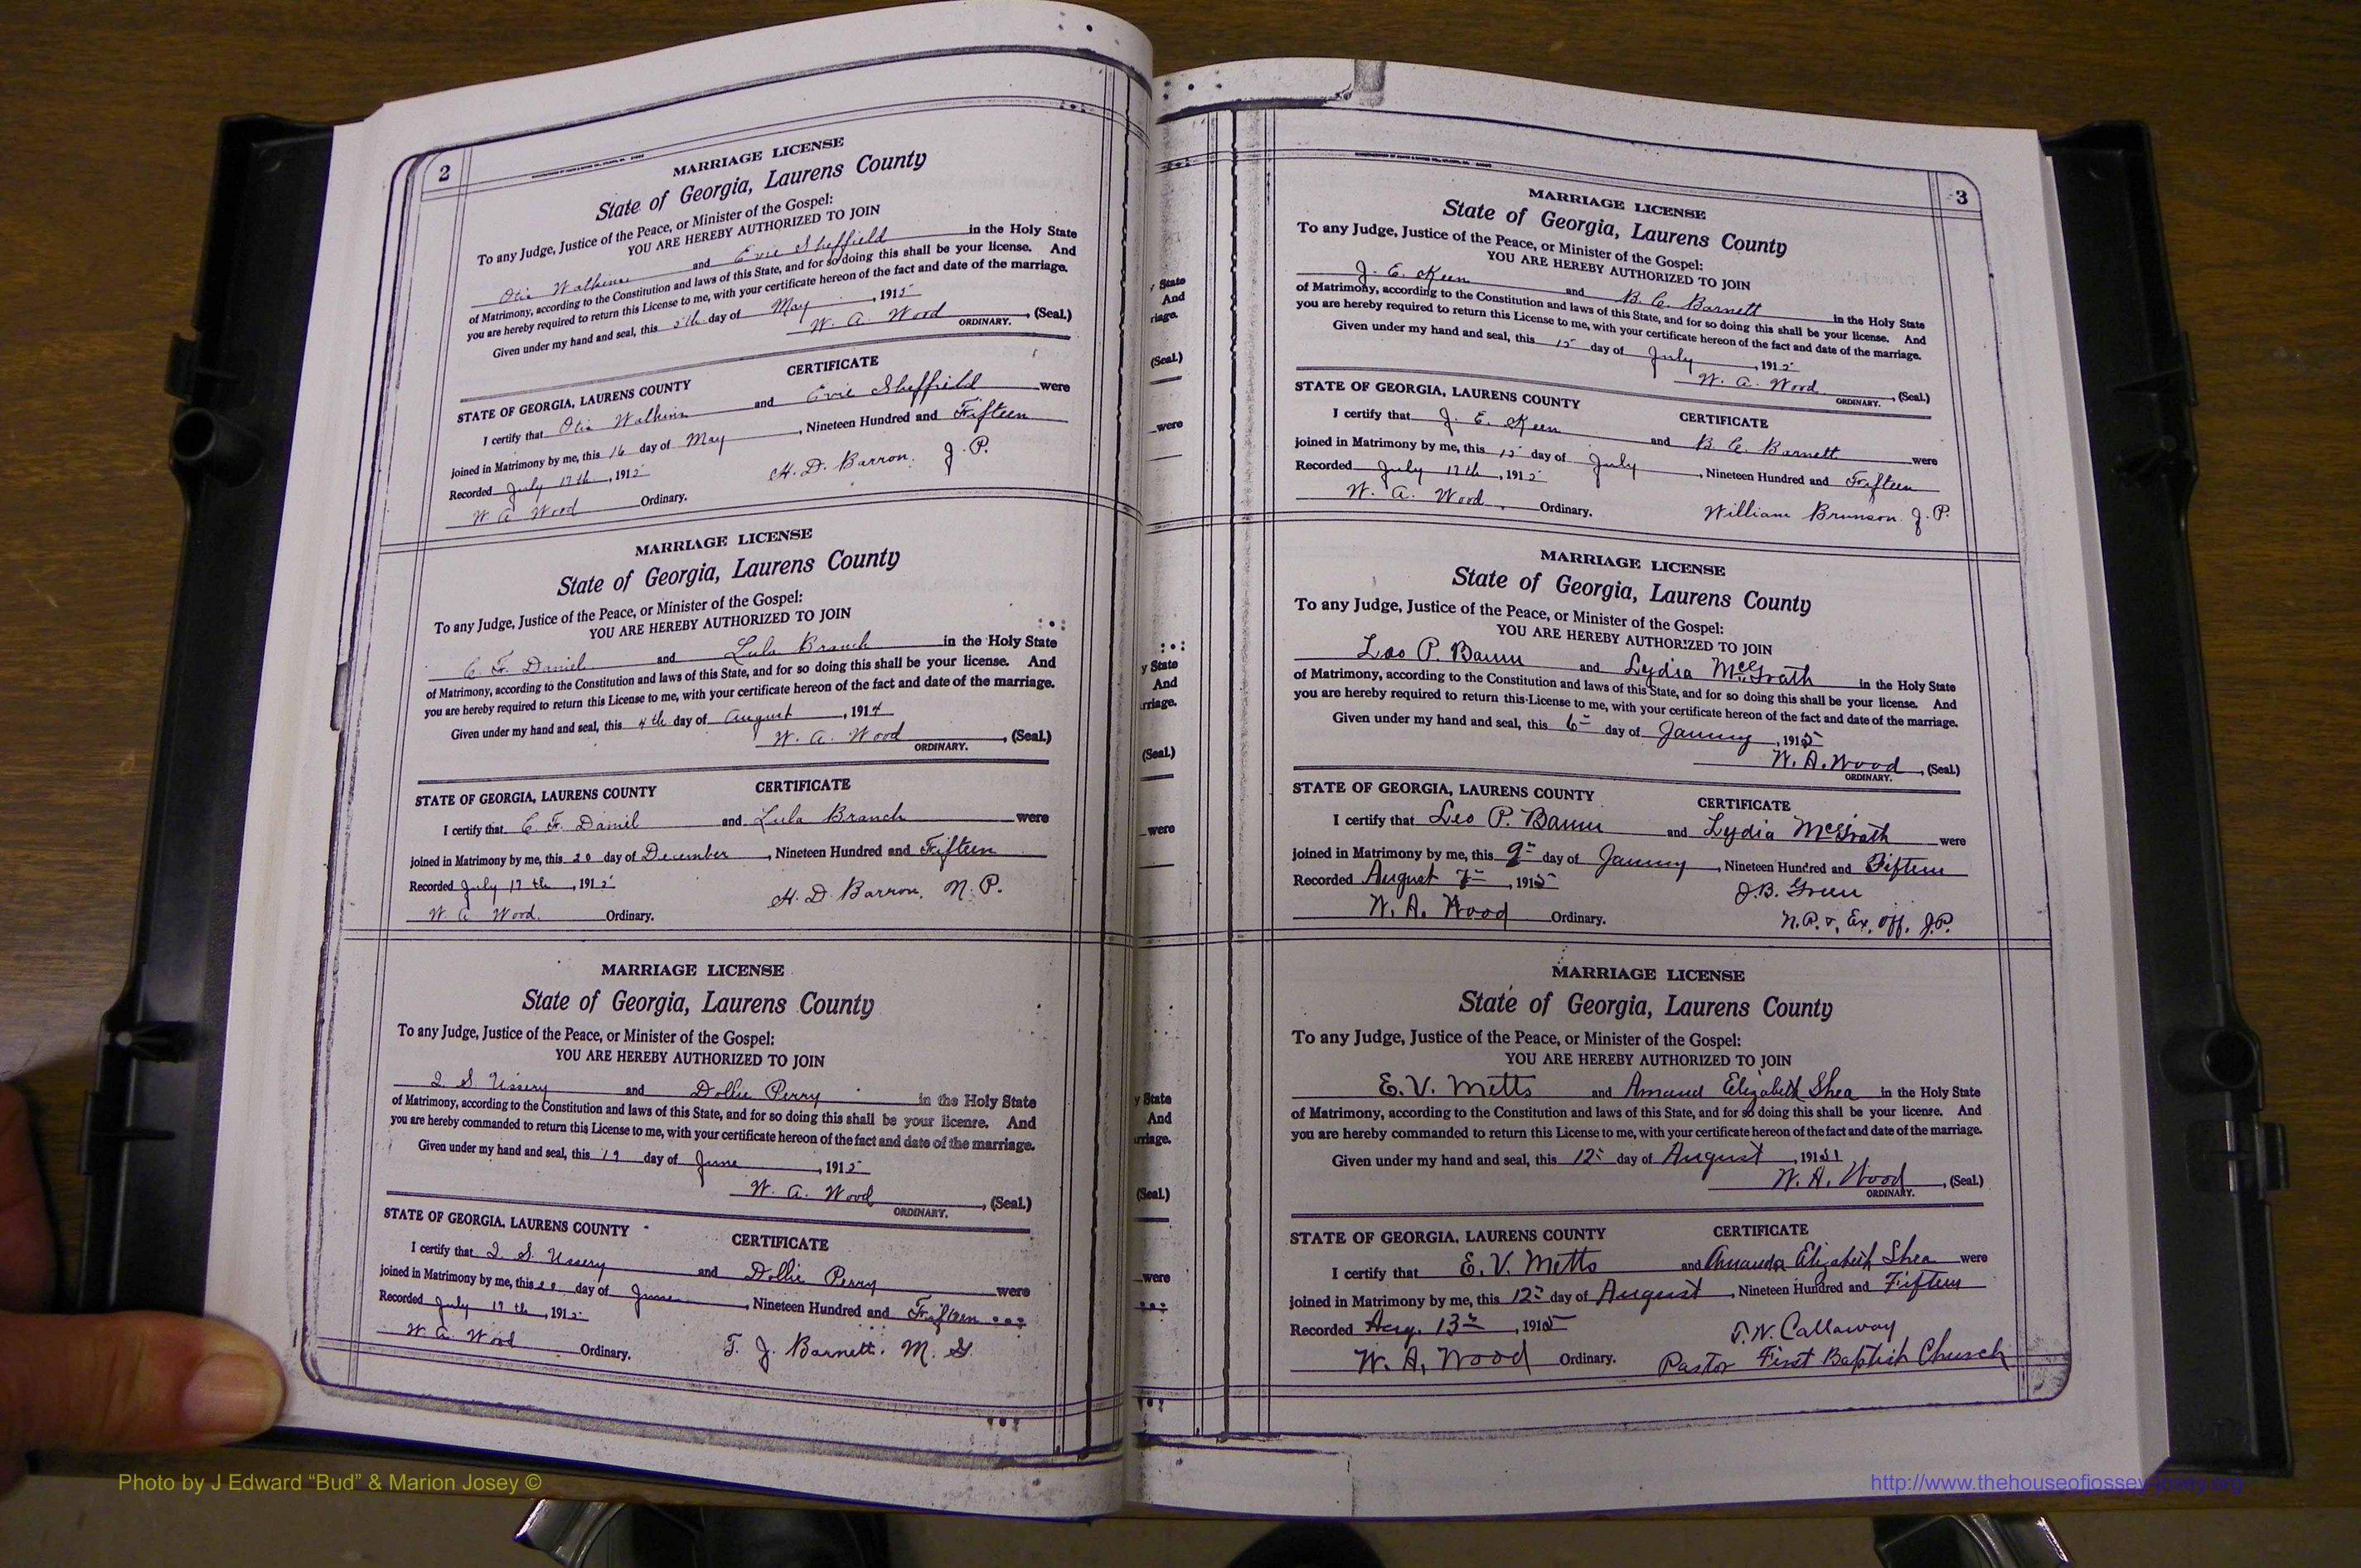 2
MARRIAGE LICENSE
State of Georgia, Laurens County
To any Judge, Justice of the Peace, or Minister of the Gospel:
YOU ARE HEREBY AUTHORIZED TO JOIN
Otis Watkins and Evie Sheffield in the Holy State
of Matrimony, according to the Constitution and laws of this State, and for so doing this shall be your license. And
you are hereby required to return this License to me, with your certificate hereon of the fact and date of the marriage.
Given under my hand and seal, this 5th day of May, 1915
W. A. Wood (Seal.)
ORDINARY.
CERTIFICATE
STATE OF GEORGIA, LAURENS COUNTY
I certify that Otis Watkins and Evie Sheffield were
joined in Matrimony by me, this 16 day of May, Nineteen Hundred and Fifteen
Recorded July 17th, 1915 H. D. Barron, J. P.
W. A. Wood Ordinary.
MARRIAGE LICENSE
State of Georgia, Laurens County
To any Judge, Justice of the Peace, or Minister of the Gospel:
YOU ARE HEREBY AUTHORIZED TO JOIN
C. F. Daniel and Lula Branch in the Holy State
of Matrimony, according to the Constitution and laws of this State, and for so doing this shall be your license. And
you are hereby required to return this License to me, with your certificate hereon of the fact and date of the marriage.
Given under my hand and seal, this 4th day of August, 1914
W. A. Wood (Seal.)
ORDINARY.
STATE OF GEORGIA, LAURENS COUNTY CERTIFICATE
I certify that C. F. Daniel and Lula Branch were
joined in Matrimony by me, this 20 day of December, Nineteen Hundred and Fifteen
Recorded July 17th, 1915 H. D. Barron, N. P.
W. A. Wood. Ordinary.
MARRIAGE LICENSE
State of Georgia, Laurens County
To any Judge, Justice of the Peace, or Minister of the Gospel:
YOU ARE HEREBY AUTHORIZED TO JOIN
S. Ussery and Dollie Perry in the Holy State
of Matrimony, according to the Constitution and laws of this State, and for so doing this shall be your license. And
you are hereby commanded to return this License to me, with your certificate hereon of the fact and date of the marriage.
Given under my hand and seal, this 19 day of June, 1915
W. A. Wood (Seal.)
ORDINARY.
STATE OF GEORGIA, LAURENS COUNTY CERTIFICATE
I certify that S. Ussery and Dollie Perry were
joined in Matrimony by me, this 20 day of June, Nineteen Hundred and Fifteen
Recorded July 17th, 1915
W. A. Wood Ordinary. T. J. Barnett. M. G.
3
MARRIAGE LICENSE
State of Georgia, Laurens County
To any Judge, Justice of the Peace, or Minister of the Gospel:
YOU ARE HEREBY AUTHORIZED TO JOIN
J. E. Keen and B. C. Barnett in the Holy State
of Matrimony, according to the Constitution and laws of this State, and for so doing this shall be your license. And
you are hereby required to return this License to me, with your certificate hereon of the fact and date of the marriage.
Given under my hand and seal, this 15 day of July, 1915
W. A. Wood (Seal.)
ORDINARY.
STATE OF GEORGIA, LAURENS COUNTY CERTIFICATE
I certify that J. E. Keen and B. C. Barnett were
joined in Matrimony by me, this 15 day of July, Nineteen Hundred and Fifteen
Recorded July 17th, 1915
W. A. Wood. Ordinary. William Brunson J. P.
MARRIAGE LICENSE
State of Georgia, Laurens County
To any Judge, Justice of the Peace, or Minister of the Gospel:
YOU ARE HEREBY AUTHORIZED TO JOIN
Leo P. Baum and Lydia McGrath in the Holy State
of Matrimony, according to the Constitution and laws of this State, and for so doing this shall be your license. And
you are hereby required to return this License to me, with your certificate hereon of the fact and date of the marriage.
Given under my hand and seal, this 6" day of January, 1915
W. A. Wood (Seal.)
ORDINARY.
STATE OF GEORGIA, LAURENS COUNTY CERTIFICATE
I certify that Leo P. Baum and Lydia McGrath were
joined in Matrimony by me, this 9" day of January, Nineteen Hundred and Fifteen
Recorded August 7", 1915 J. B. Green
W. A. Wood Ordinary. N. P. & Ex. off. J. P.
MARRIAGE LICENSE
State of Georgia, Laurens County
To any Judge, Justice of the Peace, or Minister of the Gospel:
YOU ARE HEREBY AUTHORIZED TO JOIN
E. V. Metts and Elizabeth Shea in the Holy State
of Matrimony, according to the Constitution and laws of this State, and for so doing this shall be your license. And
you are hereby commanded to return this License to me, with your certificate hereon of the fact and date of the marriage.
Given under my hand and seal, this 12" day of August, 191
W. A. Wood (Seal.)
ORDINARY.
STATE OF GEORGIA, LAURENS COUNTY CERTIFICATE
I certify that E. V. Metts and Amanda Elizabeth Shea were
joined in Matrimony by me, this 12" day of August, Nineteen Hundred and Fifteen
Recorded Aug. 13", 1915 T. W. Callaway
W. A. Wood Ordinary. Pastor First Baptish Church
Photo by J Edward “Bud” & Marion Josey ©
http://www.thehouseofjossey-josey.org